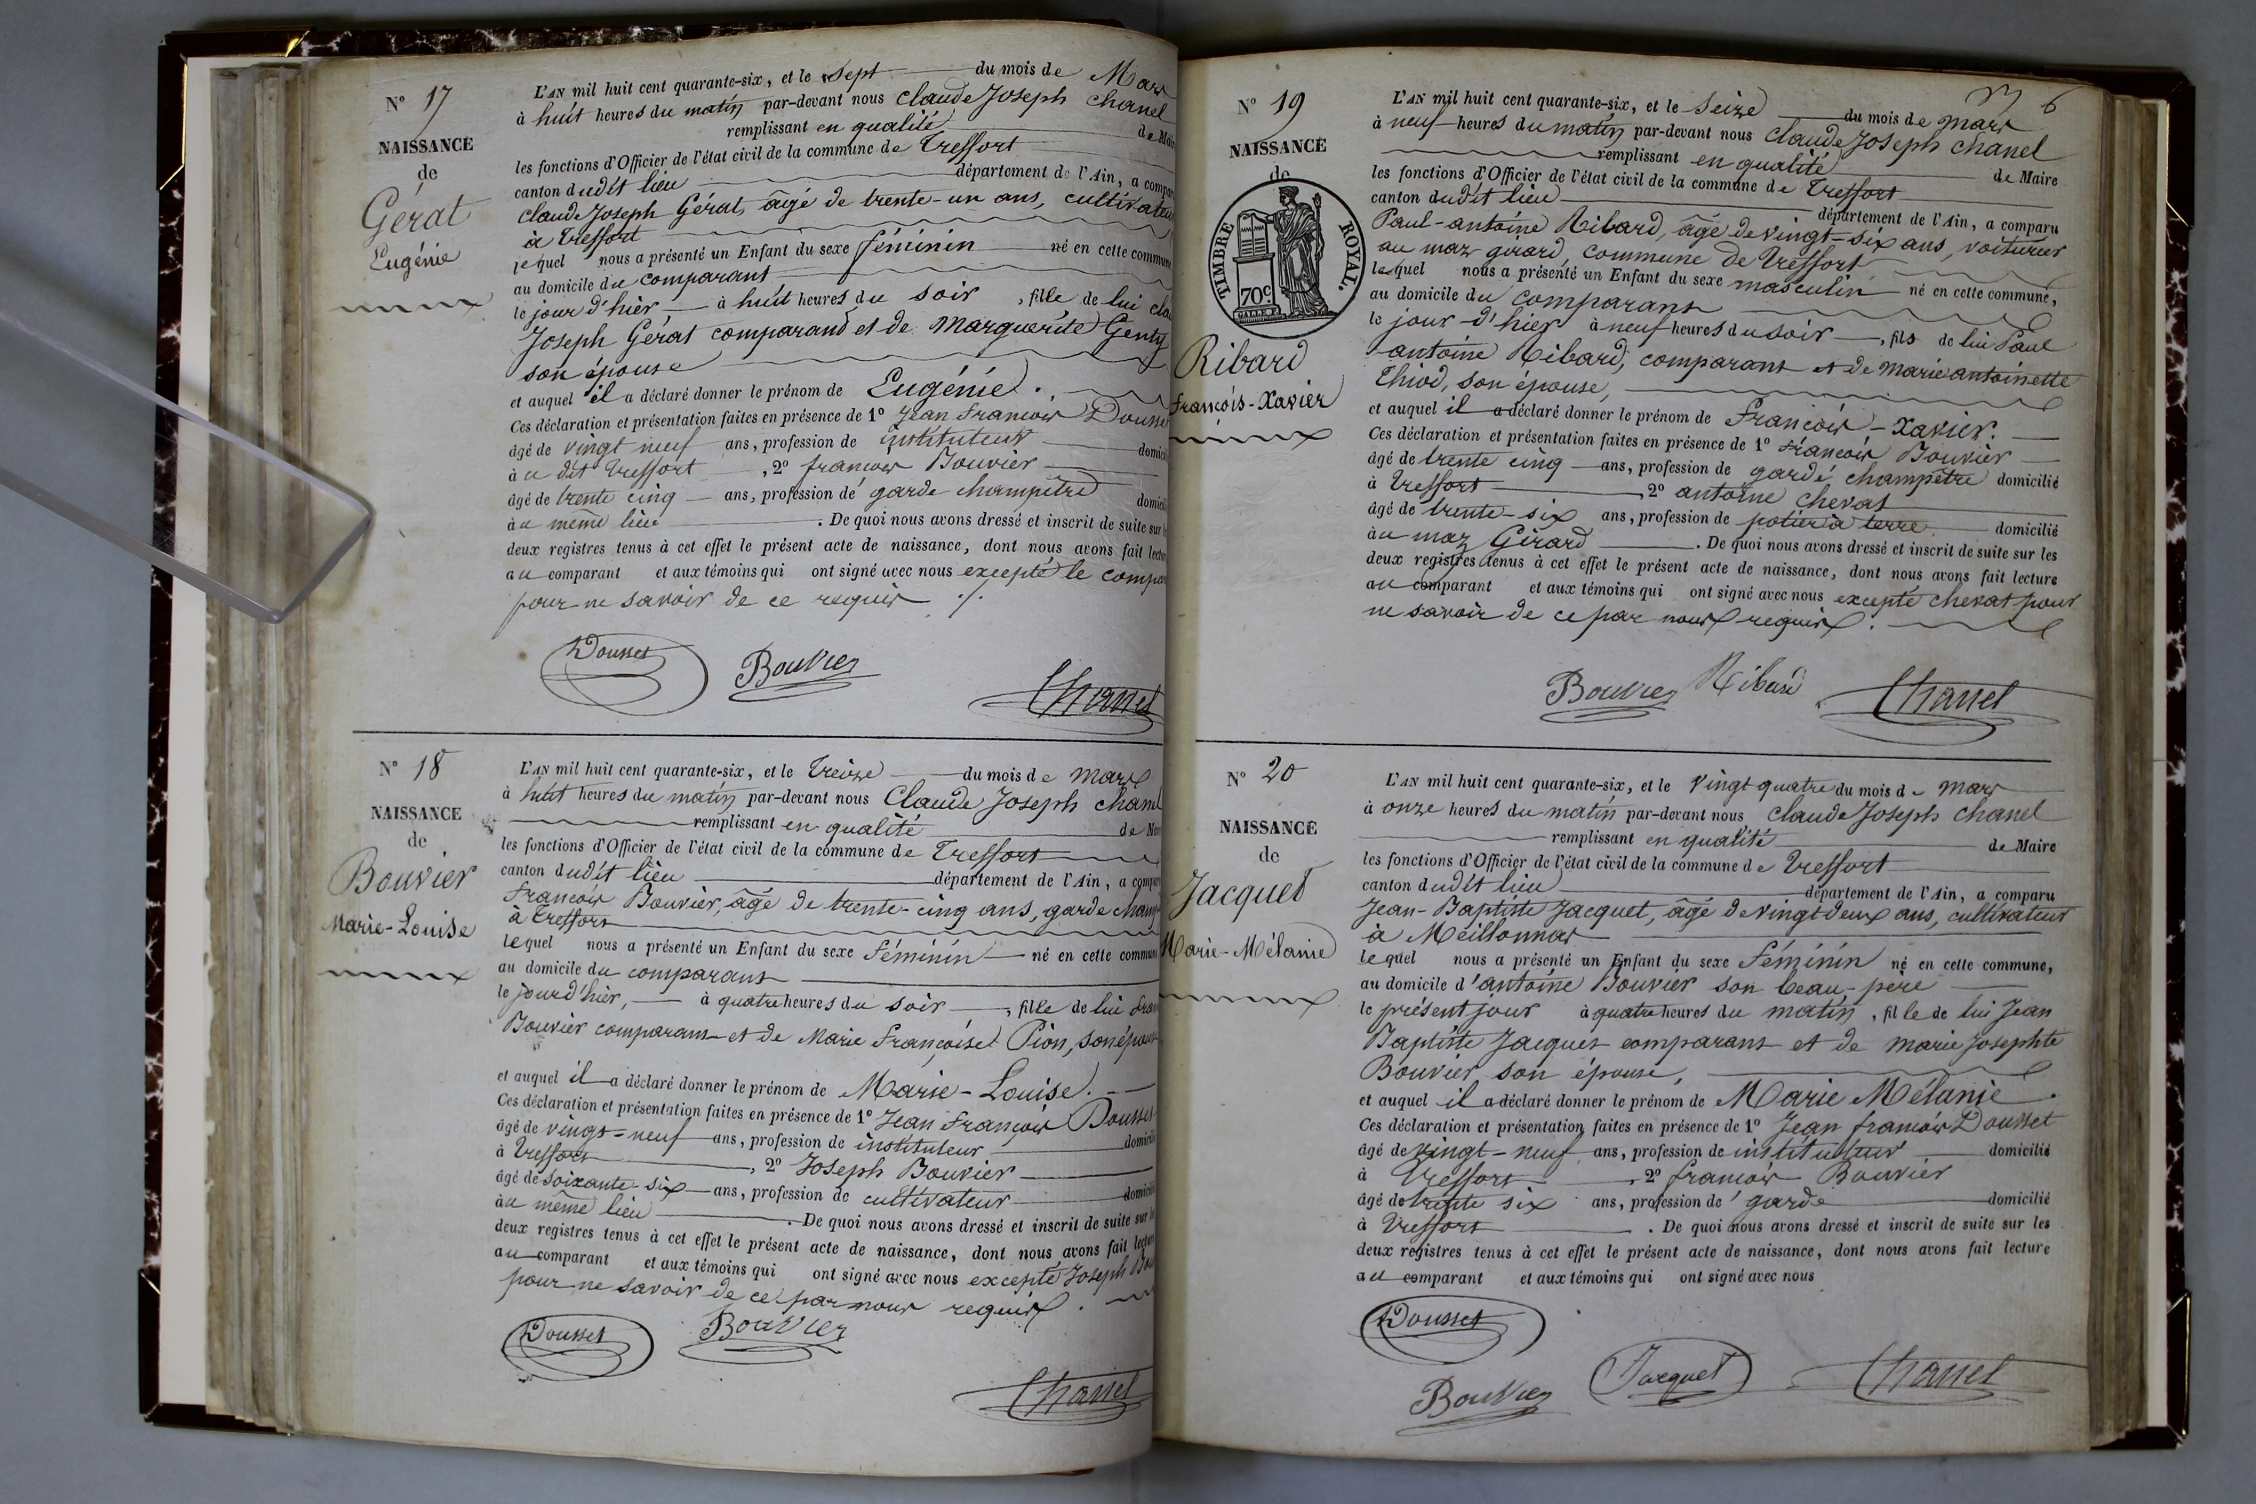 N° 17
NAISSANCE
de
Gérat
Eugénie
L'AN mil huit cent quarante-six, et le sept du mois de Mars
à huit heures du matin par-devant nous Claude Joseph Chanel
remplissant en qualité de Mai
les fonctions d'Officier de l'état civil de la commune de Treffort
canton dudit lieu département de l'Ain, a compar
Claude Joseph Gérat, âgé de trente-un ans, cultivateur
à Treffort
lequel nous a présenté un Enfant du sexe féminin né en cette commune
au domicile du comparant
le jour d'hier, à huit heures du soir, fille de lui Cla
Joseph Gérat comparant et de Marguerite Genty
son épouse
et auquel il a déclaré donner le prénom de Eugénie.
Ces déclaration et présentation faites en présence de 1° Jean François Dousset
âgé de vingt neuf ans, profession de instituteur domici
à u dit Treffort, 2° françois Bouvier
âgé de trente cinq ans, profession de garde champêtre domici
à u même lieu. De quoi nous avons dressé et inscrit de suite sur l
deux registres tenus à cet effet le présent acte de naissance, dont nous avons fait lectur
au comparant et aux témoins qui ont signé avec nous excepté le compar
pour ne savoir de ce requis ./.
Dousset
Bouvier
Chanel
N° 18
NAISSANCE
de
Bouvier
Marie-Louise
L'AN mil huit cent quarante-six, et le Treize du mois de Mars
à huit heures du matin par-devant nous Claude Joseph Chanel
remplissant en qualité de M
les fonctions d'Officier de l'état civil de la commune de Treffort
canton dudit lieu département de l'Ain, a compar
François Bouvier, âgé de trente-cinq ans, garde champ
à Treffort
lequel nous a présenté un Enfant du sexe Féminin né en cette commun
au domicile du comparant
le jour d'hier, à quatre heures du soir, fille de lui fran
Bouvier comparant et de Marie Françoise Pion, son épouse
et auquel il a déclaré donner le prénom de Marie-Louise.
Ces déclaration et présentation faites en présence de 1° Jean François Dousset
âgé de vingt-neuf ans, profession de instituteur domicili
à Treffort, 2° Joseph Bouvier
âgé de soixante-six ans, profession de cultivateur domicili
à u même lieu. De quoi nous avons dressé et inscrit de suite sur l
deux registres tenus à cet effet le présent acte de naissance, dont nous avons fait lectur
au comparant et aux témoins qui ont signé avec nous excepté Joseph Bou
pour ne savoir de ce par nous requis.
Dousset
Bouvier
Chanel
6
N° 19
NAISSANCE
de
TIMBRE ROYAL.
70c
Ribard
François-Xavier
L'AN mil huit cent quarante-six, et le Seize du mois de mars
à neuf heures du matin par-devant nous Claude Joseph Chanel
remplissant en qualité de Maire
les fonctions d'Officier de l'état civil de la commune de Treffort
canton dudit lieu département de l'Ain, a comparu
Paul-antoine Ribard, âgé de vingt-six ans, voiturier
au maz girard, commune de Treffort
lequel nous a présenté un Enfant du sexe masculin né en cette commune,
au domicile du comparant
le jour d'hier à neuf heures du soir, fils de lui Paul
antoine Ribard, comparant et de Marie antoinette
Thiod, son épouse,
et auquel il a déclaré donner le prénom de François-Xavier.
Ces déclaration et présentation faites en présence de 1° françois Bouvier
âgé de trente cinq ans, profession de garde champêtre domicilié
à Treffort, 2° antoine Chevat
âgé de trente-six ans, profession de potier à terre domicilié
à u maz Girard. De quoi nous avons dressé et inscrit de suite sur les
deux registres tenus à cet effet le présent acte de naissance, dont nous avons fait lecture
au comparant et aux témoins qui ont signé avec nous excepté Chevat pour
ne savoir de ce par nous requis.
Bouvier
Ribard
Chanel
N° 20
NAISSANCE
de
Jacquet
Marie-Mélanie
L'AN mil huit cent quarante-six, et le vingt quatre du mois de mars
à onze heures du matin par-devant nous Claude Joseph Chanel
remplissant en qualité de Maire
les fonctions d'Officier de l'état civil de la commune de Treffort
canton dudit lieu département de l'Ain, a comparu
Jean-Baptiste Jacquet, âgé de vingt deux ans, cultivateur
à Meillonnas
lequel nous a présenté un Enfant du sexe Féminin né en cette commune,
au domicile d'antoine Bouvier son beau-père
le présent jour à quatre heures du matin, fille de lui Jean
Baptiste Jacquet comparant et de marie Josephte
Bouvier son épouse,
et auquel il a déclaré donner le prénom de Marie Mélanie.
Ces déclaration et présentation faites en présence de 1° Jean françois Dousset
âgé de vingt-neuf ans, profession de instituteur domicilié
à Treffort, 2° françois Bouvier
âgé de trente six ans, profession de garde domicilié
à Treffort. De quoi nous avons dressé et inscrit de suite sur les
deux registres tenus à cet effet le présent acte de naissance, dont nous avons fait lecture
au comparant et aux témoins qui ont signé avec nous
Dousset
Bouvier
Jacquet
Chanel